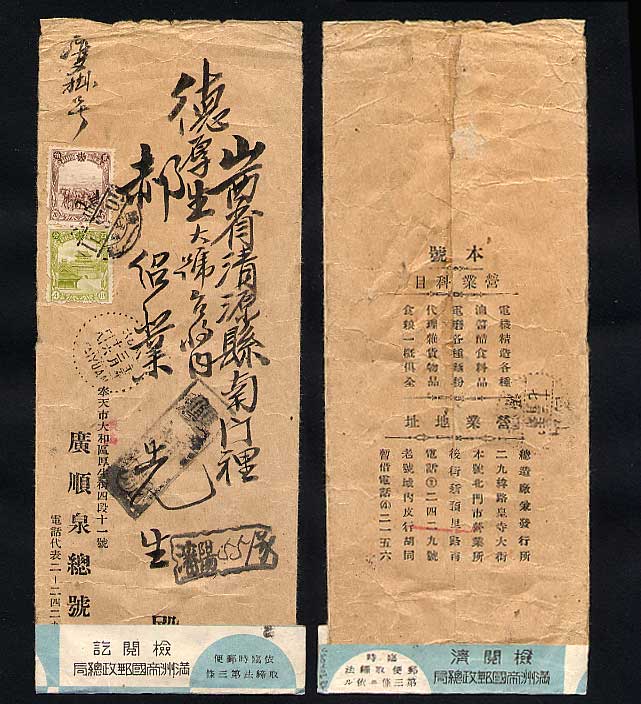 雙掛号
山西省清源縣南门裡
德厚生大號
郝侶業先生
奉天市大和區厚生街四段十一號
廣順泉總號
電話代表二-二四二
檢閱訖
滿洲帝國郵政總局
依臨時郵便
取締法第三條
本號
營業科目
電機精造各種
油醬醋食料品
電磨各種麵粉
代理雜貨物品
食粮一概俱全
營業地址
總造廠兼發行所
二九緯路皇寺大街
本號北門市營業所
後街預里路南
電話②二四二九號
老號城內皮行胡同
暫借電話④二一五六
檢閱濟
滿洲帝國郵政總局
臨時
郵便取締法
第三條ニ依ル